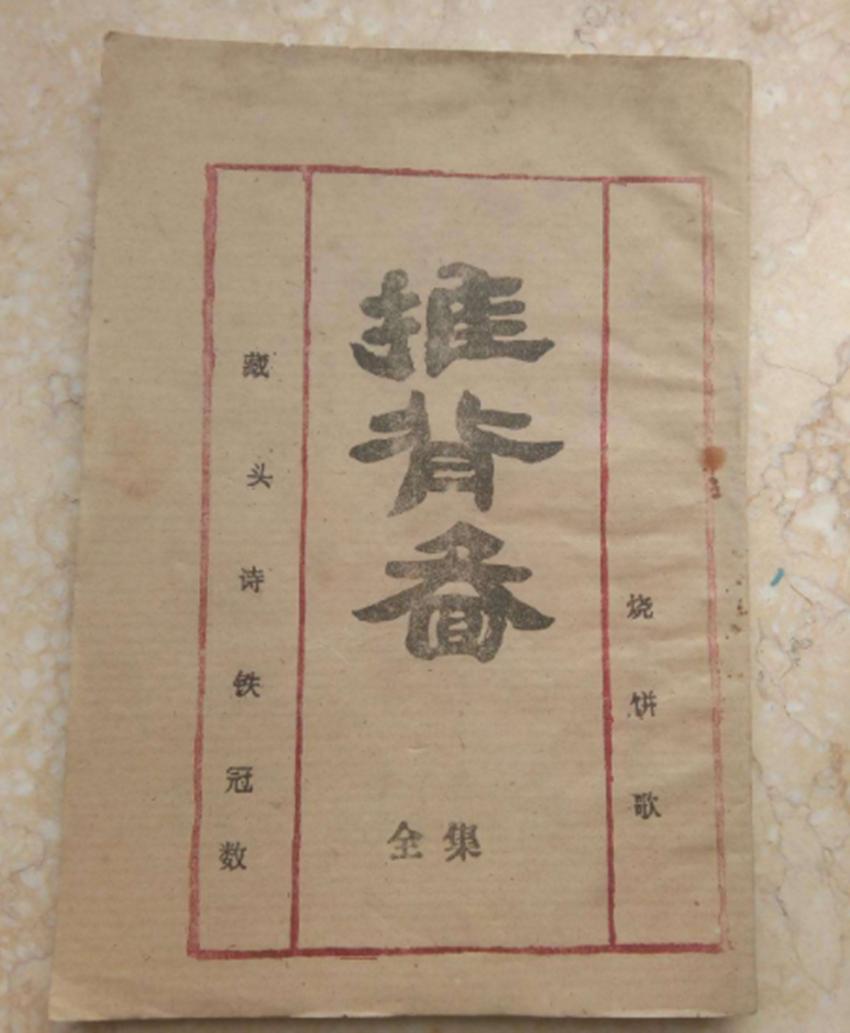 烧饼歌
推背啚
全集
藏头诗铁冠数